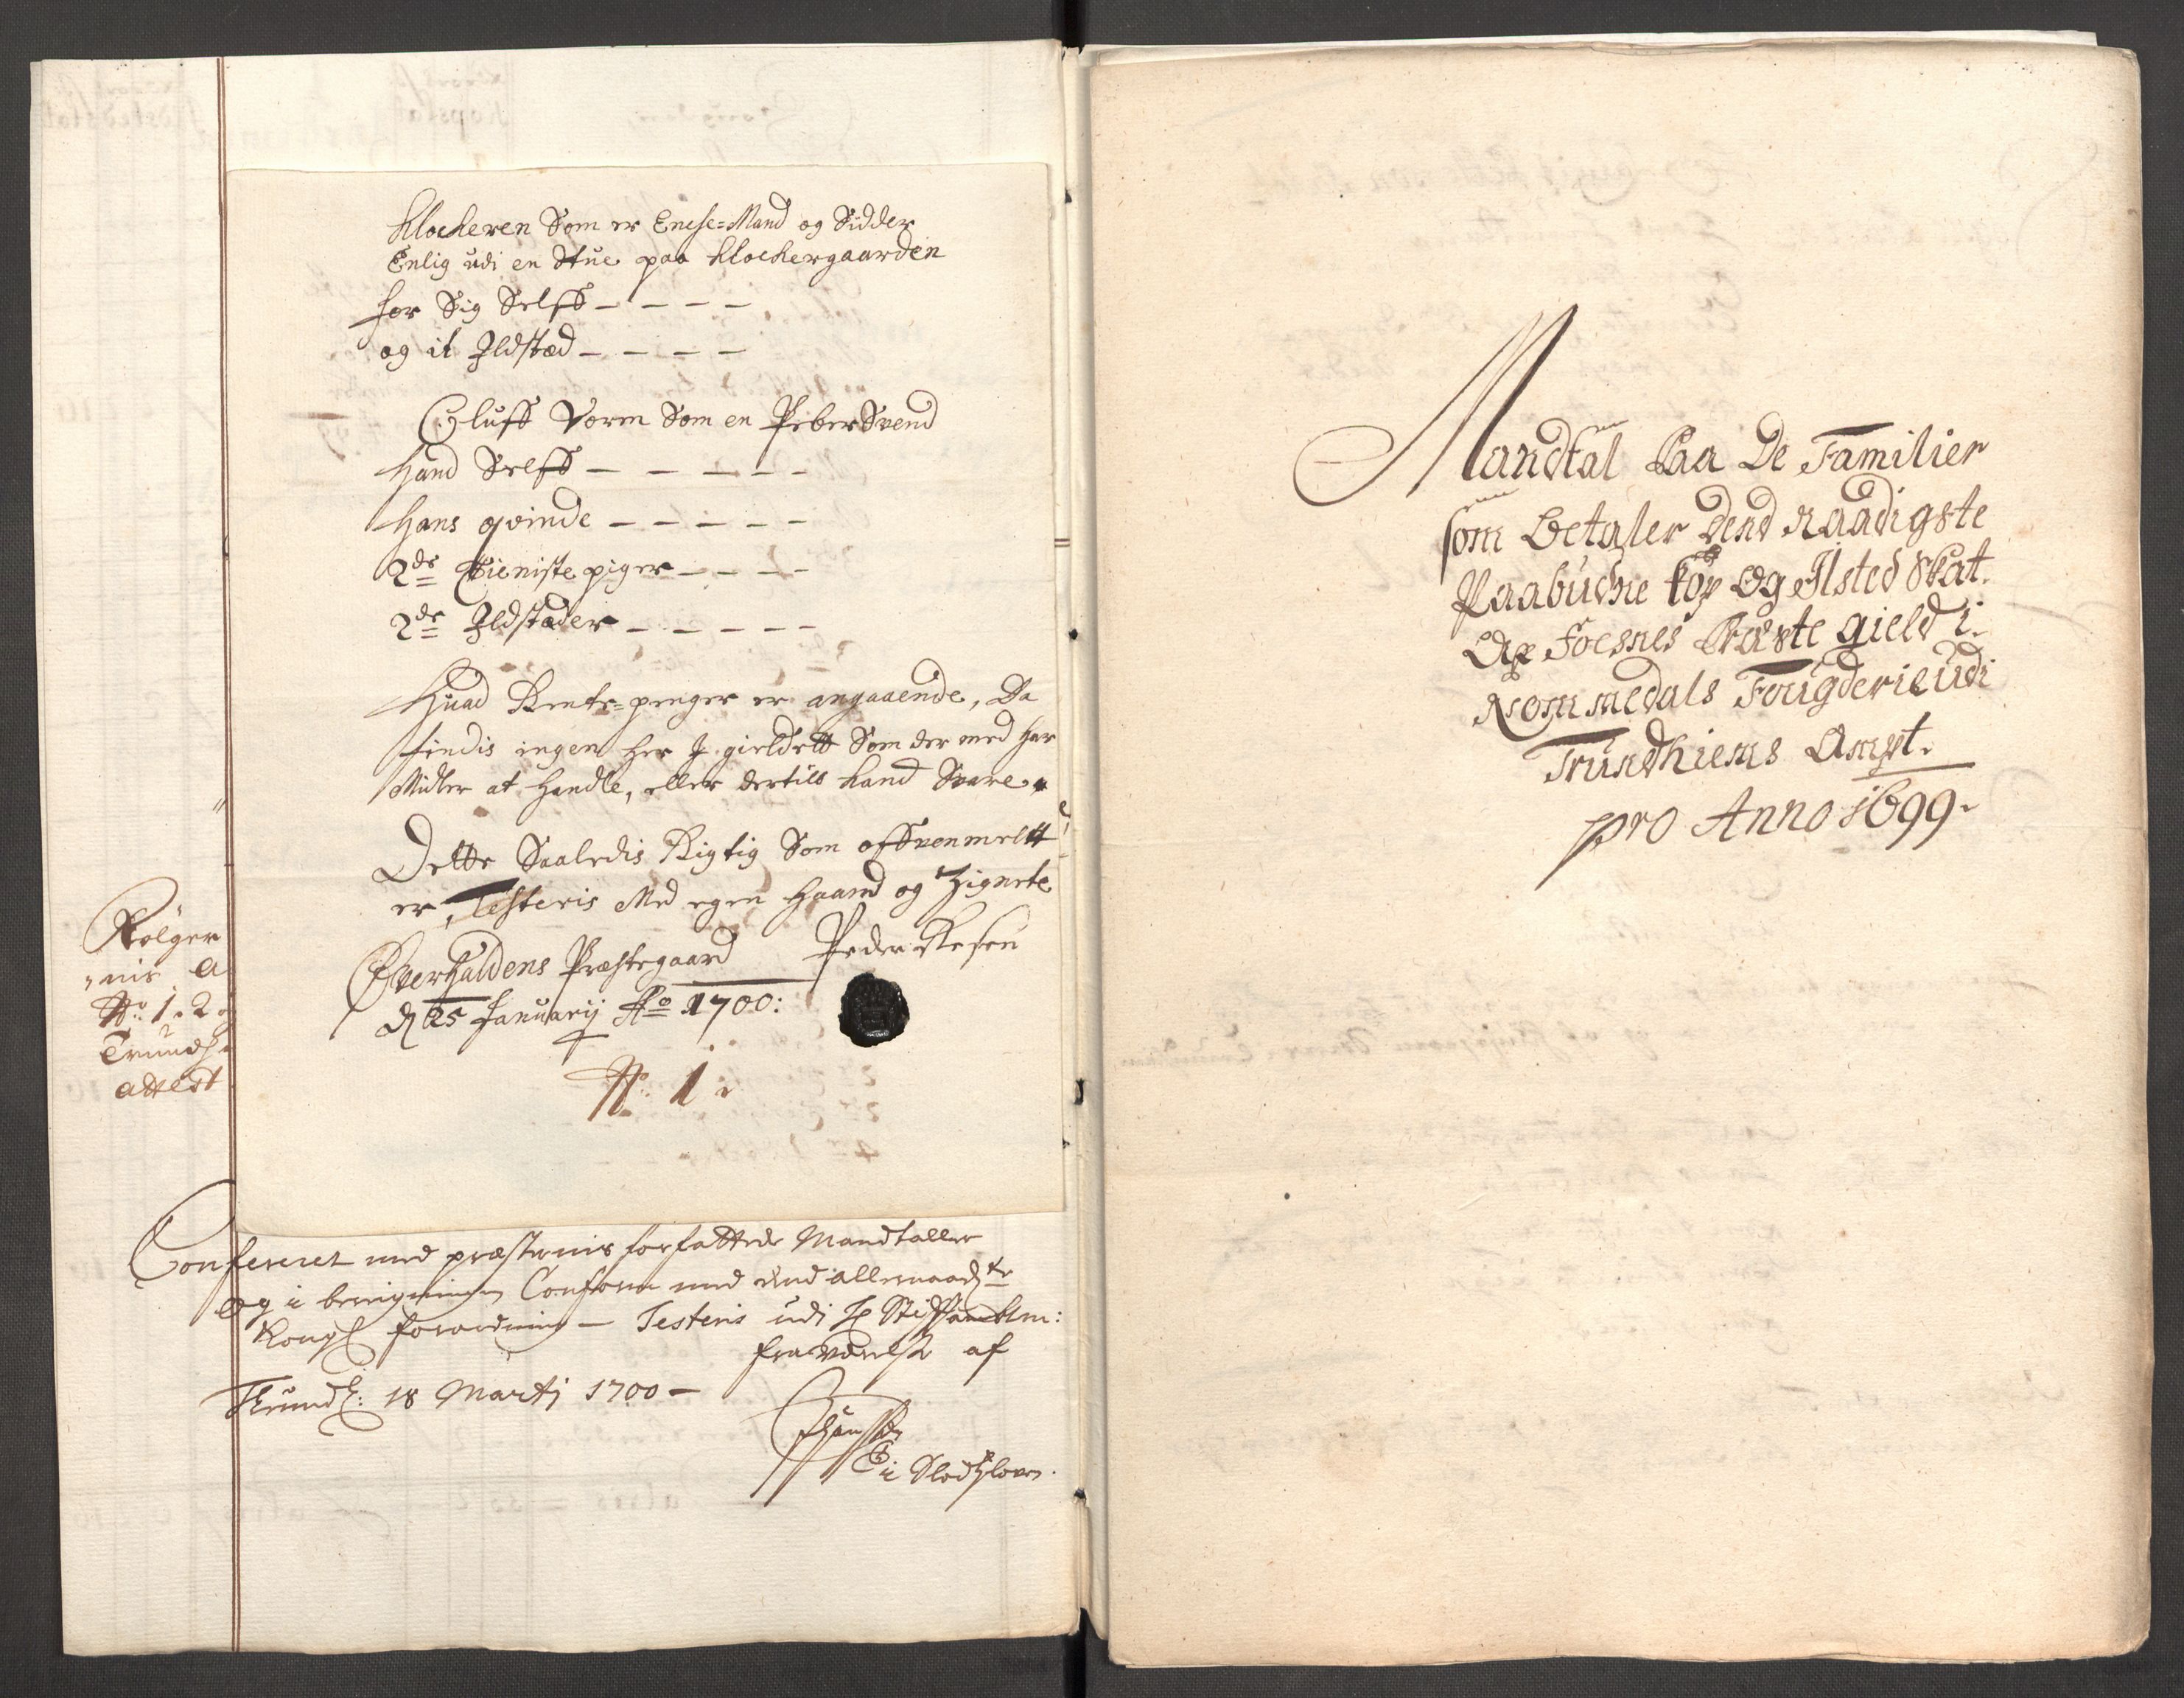 Klockeren Som er Enche=Mand og Sidder
Enlig udi en Stue paa Klockergaarden
for Sig Selff - - - -
og it Ildstæd - - - -
Oluff Vorm Som en PeberSvend
Hand Selff - - - - -
Hans qvinde - - - - -
2de Tieniste piger - - - -
2de Ildstæder - - - - -
Huad Rente=penger er angaaende, Da
findis ingen her J gieldett Som der med har
Midler at Handle, eller dertill kand Svare.
Dette Saaledis Rigtig Som offvenmeltt
er, Testeris Med egen Haand og Zignete
Overhaldens Præstegaard
Peder Resen
d 25 January Ao 1700:
No. 1.
Følger
No. 1. 2
Trundh.
attest
Confereret med præsternis forfattede Mandtaller
og i beregningen Conform med dend allernaadste
Kongl forordning - Testeris udi Hr Stiftambtm:
fraværelse af
Trundh: 18 Martj 1700 -
Mandtal Paa De Familier
som Betaler Dend Naadigste
Paabudne Kop Og Ilsted Skat.
Af Foesnes Præste gield i
Nommedals Fougderie udi
Trundhiems Ampt.
pro Anno 1699.